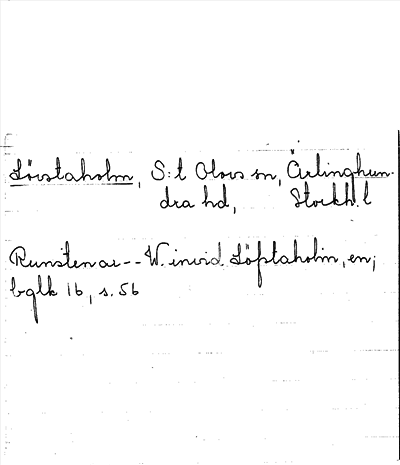 Lövstaholm, S:t Olovs sn, Ärlinghun-
dra hd, Stockh. l
Runstenar -- W. invid Löfstaholm, en;
bglk 16, s. 56